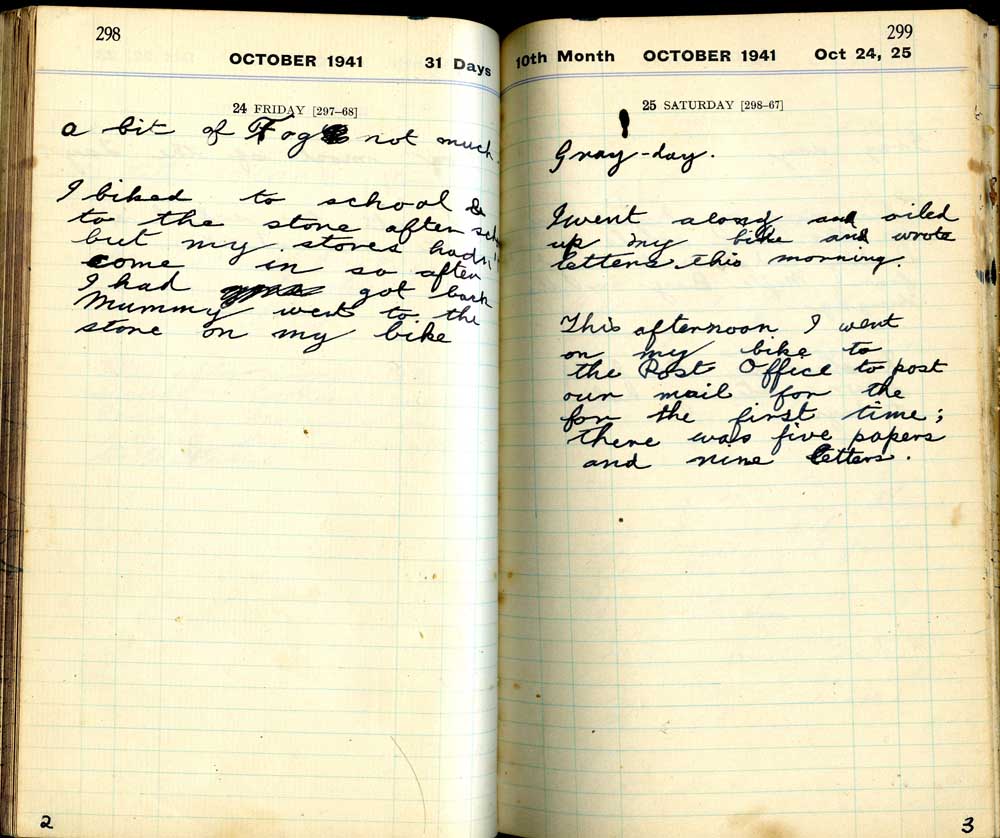 298
OCTOBER 1941 31 Days
24 FRIDAY [297–68]
a bit of Fog not much
I biked to school &
to the store after sch
but my stores hadn't
come in so after
I had got back
Mummy went to the
store on my bike
2
299
10th Month OCTOBER 1941 Oct 24, 25
25 SATURDAY [298–67]
Gray-day.
I went along and oiled
up my bike and wrote
letters this morning.
This afternoon I went
on my bike to
the Post Office to post
our mail for the
for the first time;
there was five papers
and nine letters.
3